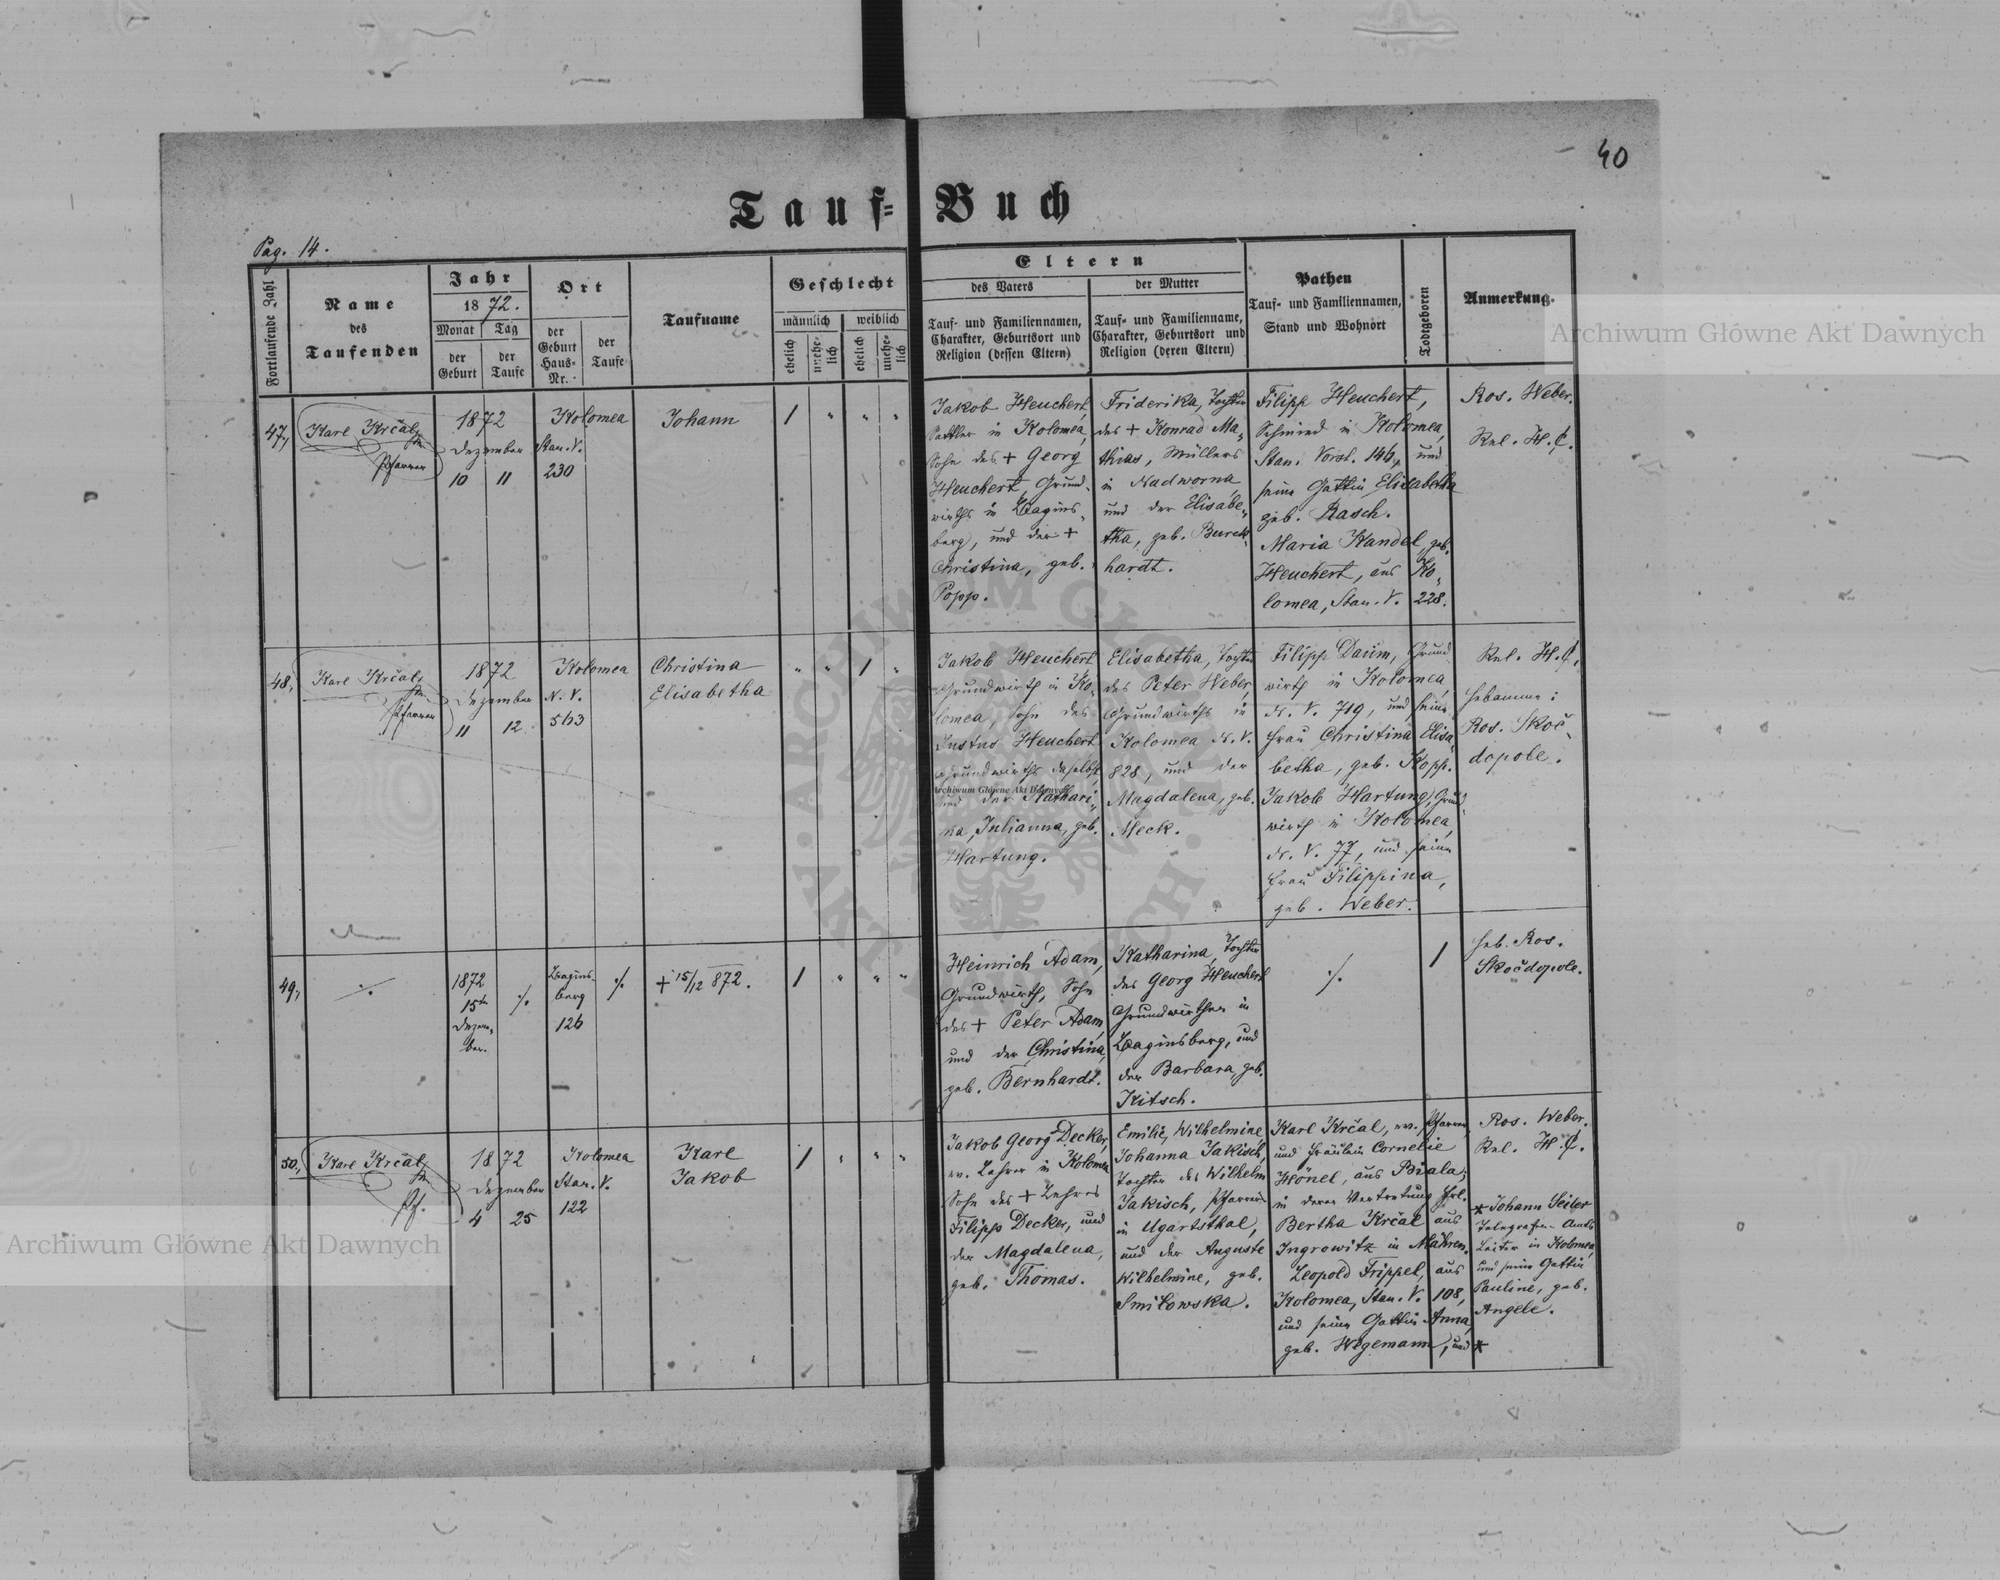 40
Tauf-Buch
Pag. 14.
Fortlaufende Zahl
Name
des
Taufenden
Jahr
1872.
Monat
Tag
der
Geburt
der
Taufe
Ort
der
Geburt
Haus-
Nr.
der
Taufe
Taufname
Geschlecht
männlich
weiblich
ehelich
unehe-
lich
ehelich
unehe-
lich
Eltern
des Vaters
Tauf- und Familiennamen,
Charakter, Geburtsort und
Religion (dessen Eltern)
der Mutter
Tauf- und Familienname,
Charakter, Geburtsort und
Religion (deren Eltern)
Pathen
Tauf- und Familiennamen,
Stand und Wohnort
Todtgeboren
Anmerkung.
Archiwum Główne Akt Dawnych
47.,
Karl Krčal,
Pfarrer
1872
Dezember
10 11
Kolomea
Stan. V.
230
Johann
/ " " "
Jakob Heuchert,
Sattler in Kolomea,
Sohn des + Georg
Heuchert, Grund-
wirths in Bagins-
berg, und der +
Christina, geb.
Popp.
Friderika, Tochter
des + Konrad Ma-
thias, Müllers
in Nadworna,
und der Elisabe-
tha, geb. Burck-
hardt.
Filipp Heuchert,
Schmied in Kolomea,
Stan. Vorst. 146, und
seine Gattin Elisabetha
geb. Rasch.
Maria Kandel, geb.
Heuchert, aus Ko-
lomea, Stan. V. 228.
Ros. Weber.
Rel. H. C.
48.,
Karl Krčal,
Pfarrer
1872
Dezember
11 12
Kolomea
N. V.
563
Christina
Elisabetha
" " / "
Jakob Heuchert
Grundwirth in Ko-
lomea, Sohn des
Justus Heuchert
Grundwirths daselbst,
und der Kathari-
na, Julianna, geb.
Hartung.
Elisabetha, Tochter
des Peter Weber,
Grundwirths in
Kolomea N. V.
828, und der
Magdalena, geb.
Meck.
Filipp Daum, Grund-
wirth in Kolomea,
N. V. 719, und seine
Frau Christina Elisa-
betha, geb. Kopp.
Jakob Hartung, Grund-
wirth in Kolomea,
N. V. 77, und seine
Frau Filippina,
geb. Weber.
Rel. H. C.
Hebamme:
Ros. Skoč-
dopole.
Archiwum Główne Akt Dawnych
49.,
./.
1872
15ten
Dezem-
ber.
./.
Bagins-
berg
126
./.
+ 15/12 872.
/ " " "
Heinrich Adam,
Grundwirth, Sohn
des + Peter Adam,
und der Christina,
geb. Bernhardt.
Katharina, Tochter
des Georg Heuchert
Grundwirthen in
Baginsberg, und
der Barbara, geb.
Kitsch.
./.
/
Heb. Ros.
Skočdopole.
50.,
Karl Krčal,
Pf.
1872
Dezember
4 25
Kolomea
Stan. V.
122
Karl
Jakob
/ " " "
Jakob Georg Decker,
ev. Lehrer in Kolomea
Sohn des + Lehrers
Filipp Decker, und
der Magdalena,
geb. Thomas.
Emilie, Wilhelmine,
Johanna Jakisch,
Tochter des Wilhelm
Jakisch, Pfarrers
in Ugartsthal,
und der Auguste
Wilhelmine, geb.
Smiłowska.
Karl Krčal, ev. Pfarrer,
und Fräulein Cornelie
Hönel, aus Biala;
in deren Vertretung Frl.
Bertha Krčal aus
Ingrowitz in Mähren.
Leopold Frippel, aus
Kolomea, Stan. V. 108,
und seine Gattin Anna,
geb. Wegemann, und *
Ros. Weber.
Rel. H. C.
* Johann Seiler
Telegrafen-Amts
Leiter in Kolomea,
und seine Gattin
Pauline, geb.
Angele.
Archiwum Główne Akt Dawnych
ARCHIWUM GŁÓWNE AKT DAWNYCH